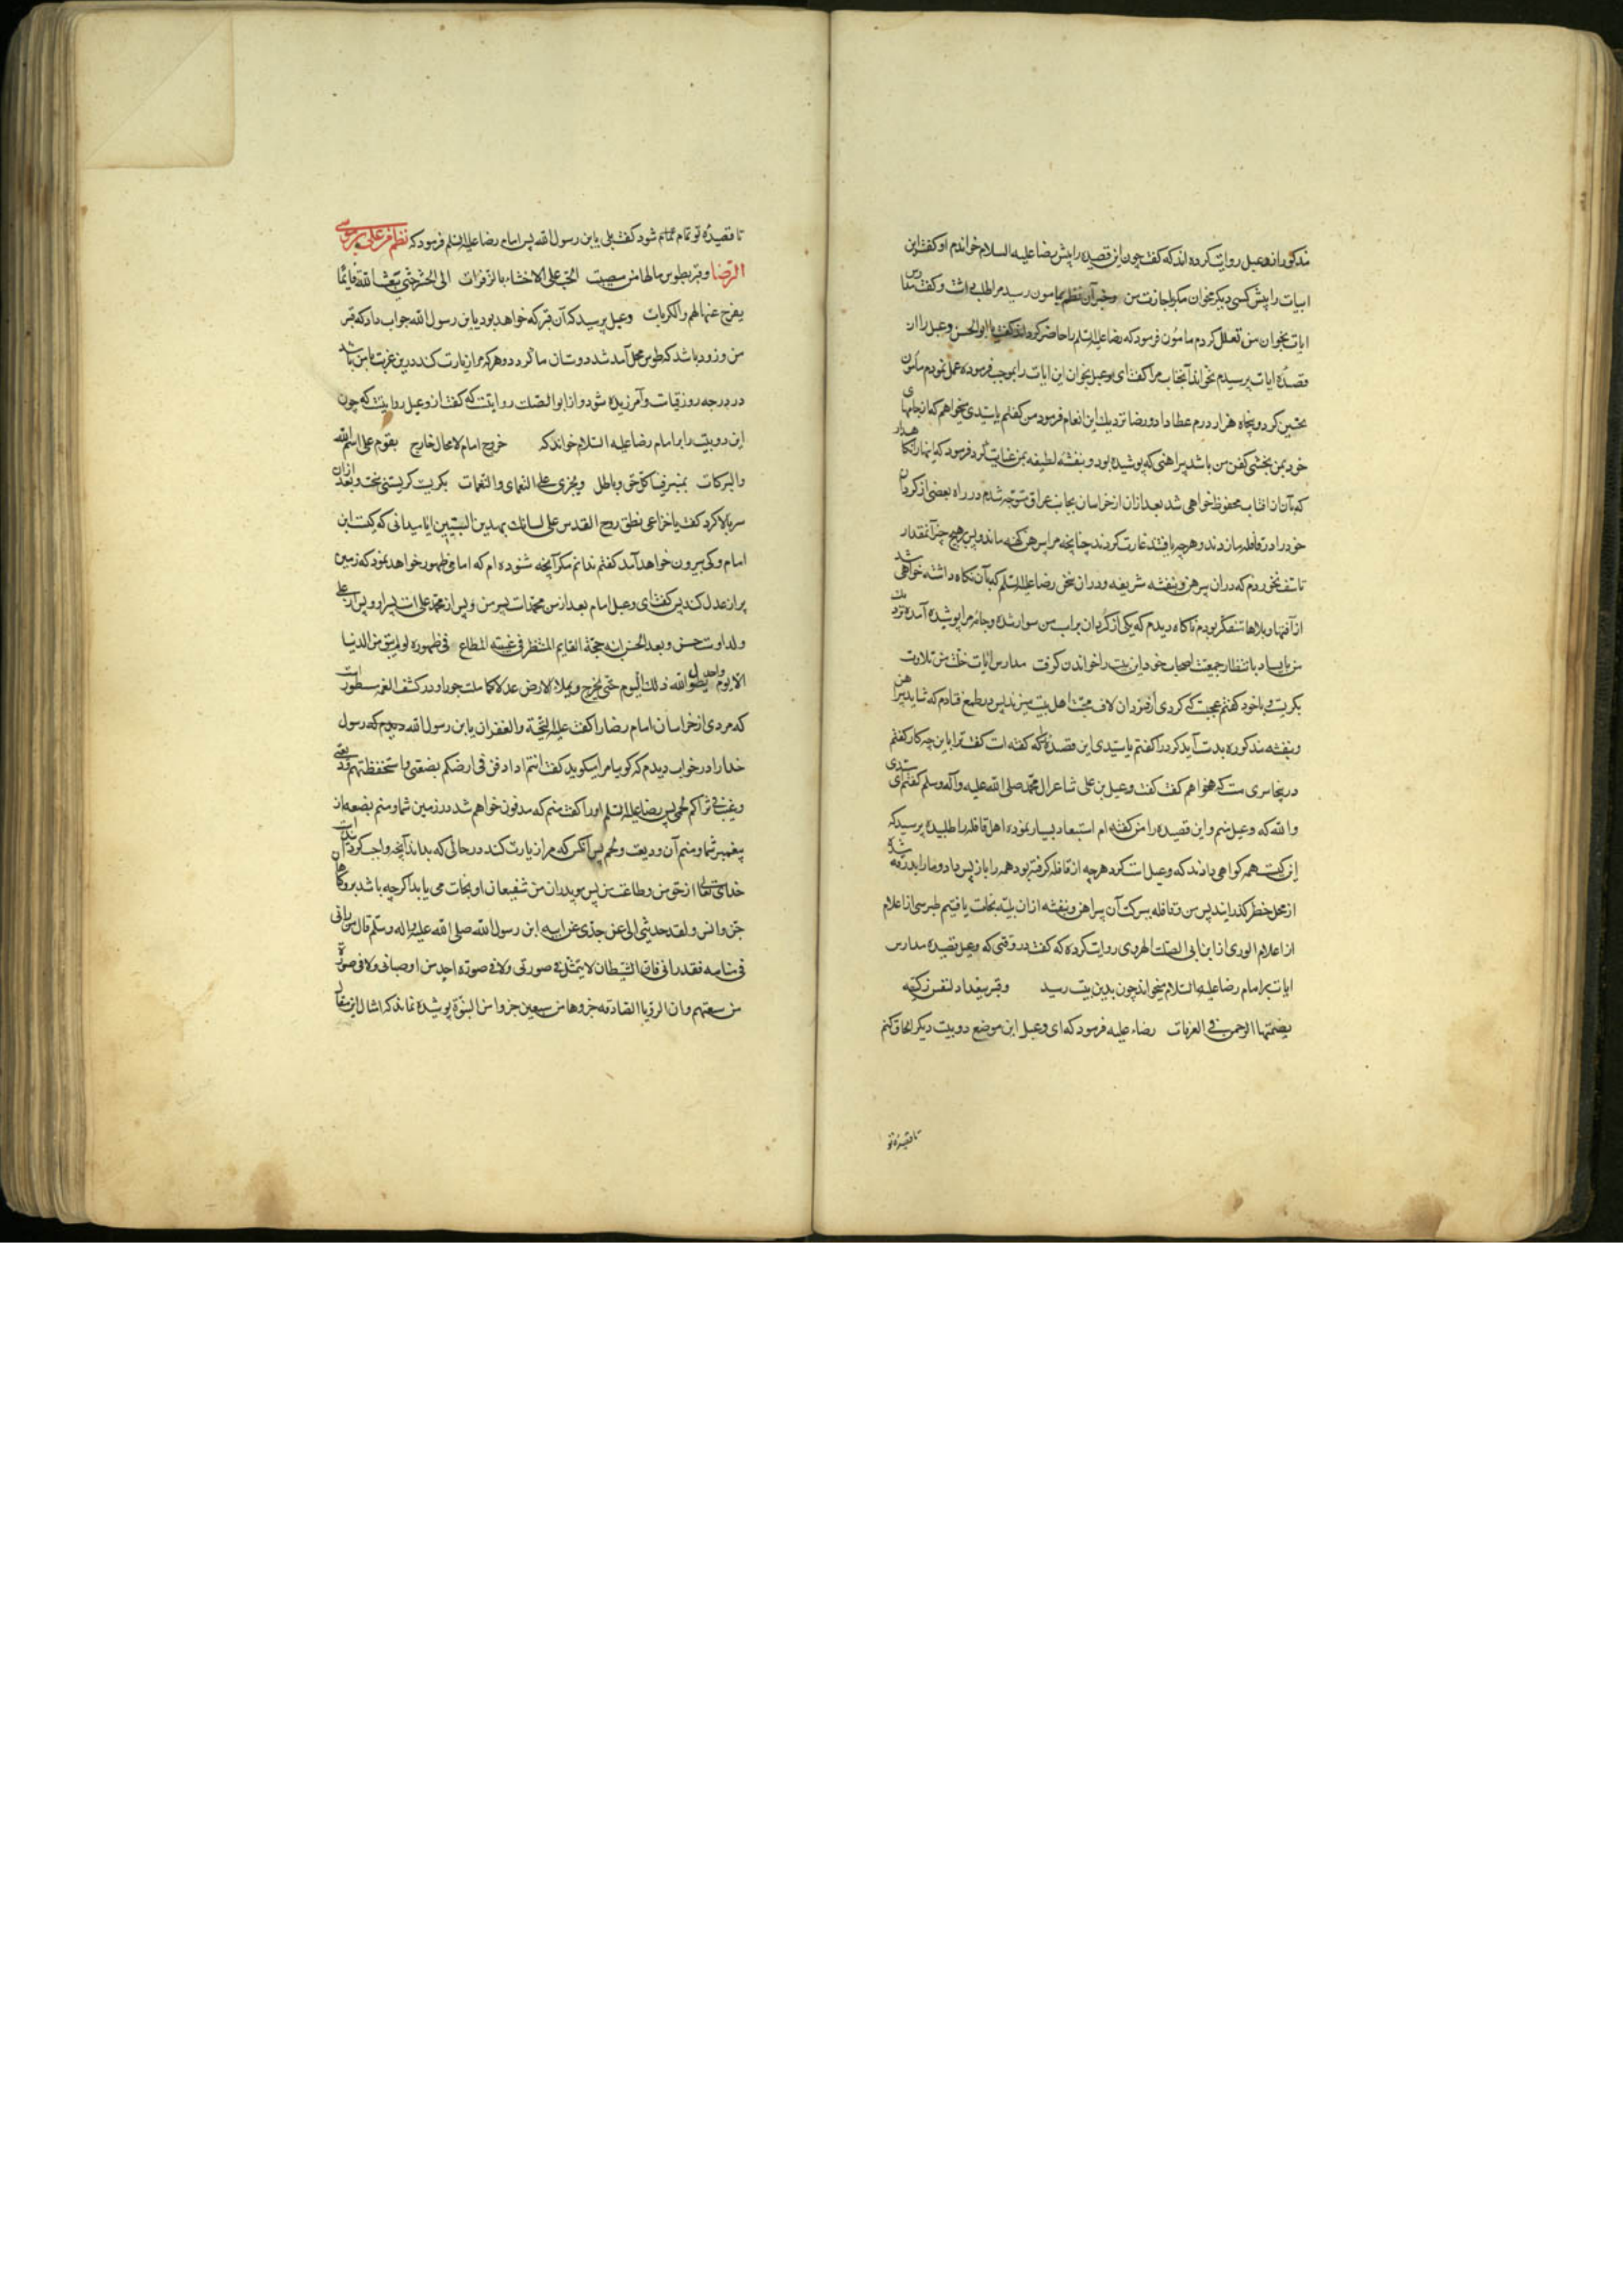 مذکور از دعبل روایت کرده اند که گفت چون این قصیده را پیش رضا علیه السلام خواندم او گفت این
ابیات را پیش کسی دیگر مخوان مگر باجازت من و خبر آن نظم بمامون رسید مرا طلب داشت و گفت مدارس
ایات بخوان من تعلل کردم مامون فرمود که رضا علیه السلم را حاضر کردند گفت یا ابوالحسن دعبل را از
قصیده ایات پرسیدم نخواند آنجناب مرا گفت ای دعبل بخوان این ابیات را بموجب فرموده عمل نمودم مامون
تحسین کرد و پنجاه هزار درم عطا داد و رضا نزدیک این انعام فرمود من گفتم یا سیدی میخواهم که از جامهای
خود بمن بخشی کفن من باشد پیراهنی که پوشیده بود و بنفشه لطیفه بمن عنایت کرد فرمود که اینها را نکاهدار
که بآن از افتاب محفوظ خواهی شد بعد از ان از خراسان بجانب عراق متوجه شدم در راه بعضی از کردان
خود را در قافله ما زدند و هرچه یافتند غارت کردند چنانچه مرا پیرهن کهنه ماند و پس بر هیچ چیز آنمقدار
تاسف نخوردم که در ان پیرهن و بنفشه شریفه و در ان سخن رضا علیه السلم که بآن نکاه داشته خواهی شد
از آفتها و بلاها متفکر بودم ناکاه دیدم که یکی از کردان بر اسب من سوار شده و جامه مرا پوشیده آمده نزدیک
من بایستاد بانتظار جمعیت اصحاب خود این بیت را خواندن کرفت مدارس ایات خلت من تلاوت
بکریست و با خود کفتم عجبست که کردی از دزدان لاف محبت اهل بیت میزند پس در طمع فتادم که شاید پیراهن
و بنفشه مذکوره بدست آید کرد را کفتم یا سیدی این قصیده که کفته است کفت ترا باین چه کار کفتم
در ینجا سری هست که خواهم کفت کفت دعبل بن علی شاعر ال محمد صلی الله علیه وآله وسلم کفتم ای سیدی
والله که دعبل منم و این قصیده را من کفته ام استبعاد بسیار نموده اهل قافله را طلبیده پرسید که
این کیست همه کواهی دادند که دعبل است کرد هرچه از قافله کرفته بود همه را باز پس داد و ما را بدرقه شده
از محل خطر کذرانید پس من و قافله ببرکت آن پیراهن و بنفشه از ان بلیه نجات یافتیم طبرسی از اعلام
از اعلام الوری از ابن ابی الصلت الهروی روایت کرده که کفت در وقتی که دعبل قصیده مدارس
ایات بر امام رضا علیه السلام میخواند چون بدین بیت رسید وقبر ببغداد لنفس زکیه
یضمنها الرحمن فی الغرفات رضاء علیه فرمود که ای دعبل این موضع دو بیت دیکر الحاق کنم
تا قصیده تو
تا قصیده تو تمام شود کفت بلی یابن رسول الله پس امام رضا علیه السلم فرمود که نظم فرعلی بن موسی
الرضا وقبر بطوس یا لها من مصیبت الحت علی الاحشاء بالزفرات الی الحشر حتی یبعث الله قائما
یفرج عنها الهم والکربات دعبل پرسید که آن قبر که خواهد بود یابن رسول الله جواب داد که قبر
من و زود باشد که طوس محل آمد شد دوستان ما کردد و هرکه مرا زیارت کند درین غربت با من باشد
در درجه روز قیامت و آمرزیده شود و از ابو الصلت روایتست که کفت از دعبل روایتست که چون
این دو بیت را بر امام رضا علیه السلام خواند که خروج امام لا محال خارج یقوم علی اسم الله
والبرکات یمیز فینا کل حق وباطل ویجزی علی النعمای والنقمات بکریست کریستنی سخت و بعد ازان
سر بالا کرد کفت یا خزاعی نطق روح القدس علی لسانک بهذین البیتین ایا میدانی که کیست این
امام و کی بیرون خواهد آمد کفتم ندانم مکر آنچه شنوده ام که امامی ظهور خواهد نمود که زمین
پر از عدل کند پس کفت ای دعبل امام بعد از من محمد است پسر من و پس از محمد علی است پسر او و پس از علی
ولد اوست حسن و بعد الحسن ابنه حجة القایم المنتظر فی غیبته المطاع فی ظهوره لو لم یبق من الدنیا
الا یوم واحد لطول الله ذلک الیوم حتی یخرج ویملا الارض عدلا کما ملئت جورا و در کشف الغمه مسطور است
که مردی از خراسان امام رضا را کفت علیه التحیة والغفران یابن رسول الله دیدم که رسول
خدا را در خواب دیدم که کویا مرا میکوید کیف انتم اذا دفن فی ارضکم بضعتی واستحفظتم ودیعتی
وغیب فی ثراکم لحمی پس رضا علیه السلم او را کفت منم که مدفون خواهم شد در زمین شما و منم بضعه از
پیغمبر شما و منم آن ودیعت و لحم پس آنکس که مرا زیارت کند در حالی که بداند آنچه واجب کردانیده است
خدای تعالی از حق من و طاعت من پس من و پدران من شفیعان او نجات می یابد اکرچه باشد بر و کناهان
جن و انس ولقد حدثنی ابی عن جدی عن ابیه ابن رسول الله صلی الله علیه واله وسلم قال من رانی
فی منامه فقد رانی فان الشیطان لا یتمثل فی صورتی ولا فی صورة احد من اوصیائی ولا فی صورة
من شیعتهم وان الرویا الصادقه جزوها من سبعین جزوا من النبوة پوشیده نماند که امثال این مقال